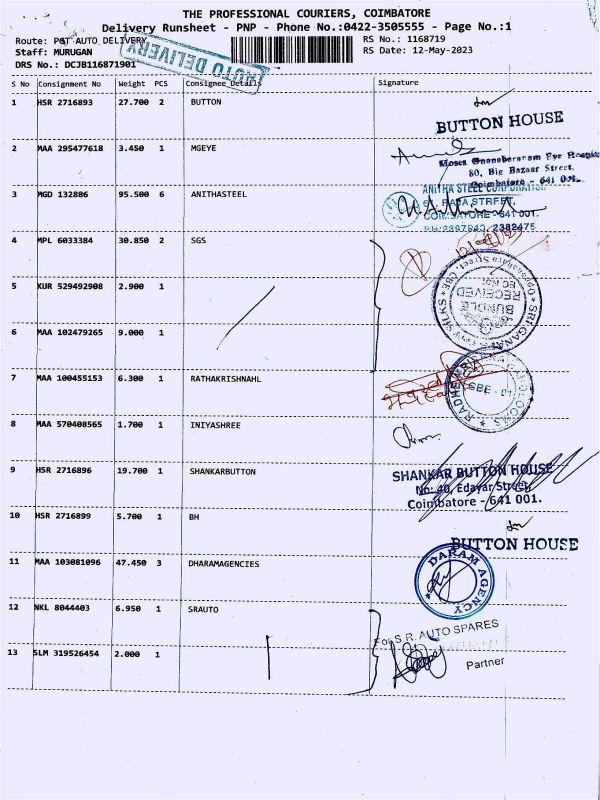 THE PROFESSIONAL COURIERS, COIMBATORE
Delivery Runsheet - PNP - Phone No.:0422-3505555 - Page No.:1
Route: P&T AUTO DELIVERY
RS No.: 1168719
Staff: MURUGAN
RS Date: 12-May-2023
DRS No.: DCJB116871901
AUTO DELIVERY
S No Consignment No Weight PCS Consignee Details Signature
1 HSR 2716893 27.700 2 BUTTON
BUTTON HOUSE
2 MAA 295477618 3.450 1 MGEYE
Moses Gnanabaranam Eye Hospital
80, Big Bazaar Street,
Coimbatore - 641 001.
3 MGD 132886 95.500 6 ANITHASTEEL
ANITHA STEEL CORPORATION
STREET,
COIMBATORE - 641 001.
PH:2387940, 2382475
4 MPL 6033384 30.850 2 SGS
5 KUR 529492908 2.900 1
BUNDLE
RECEIVED
6 MAA 102479265 9.000 1
7 MAA 100455153 6.300 1 RATHAKRISHNAHL
CBE - 01
8 MAA 570408565 1.700 1 INIYASHREE
9 HSR 2716896 19.700 1 SHANKARBUTTON
SHANKAR BUTTON HOUSE
No: 40, Edayar Street,
Coimbatore - 641 001.
10 HSR 2716899 5.700 1 BH
BUTTON HOUSE
11 MAA 103081096 47.450 3 DHARAMAGENCIES
DARAM AGENCY
12 NKL 8044403 6.950 1 SRAUTO
For S.R. AUTO SPARES
13 SLM 319526454 2.000 1
Partner